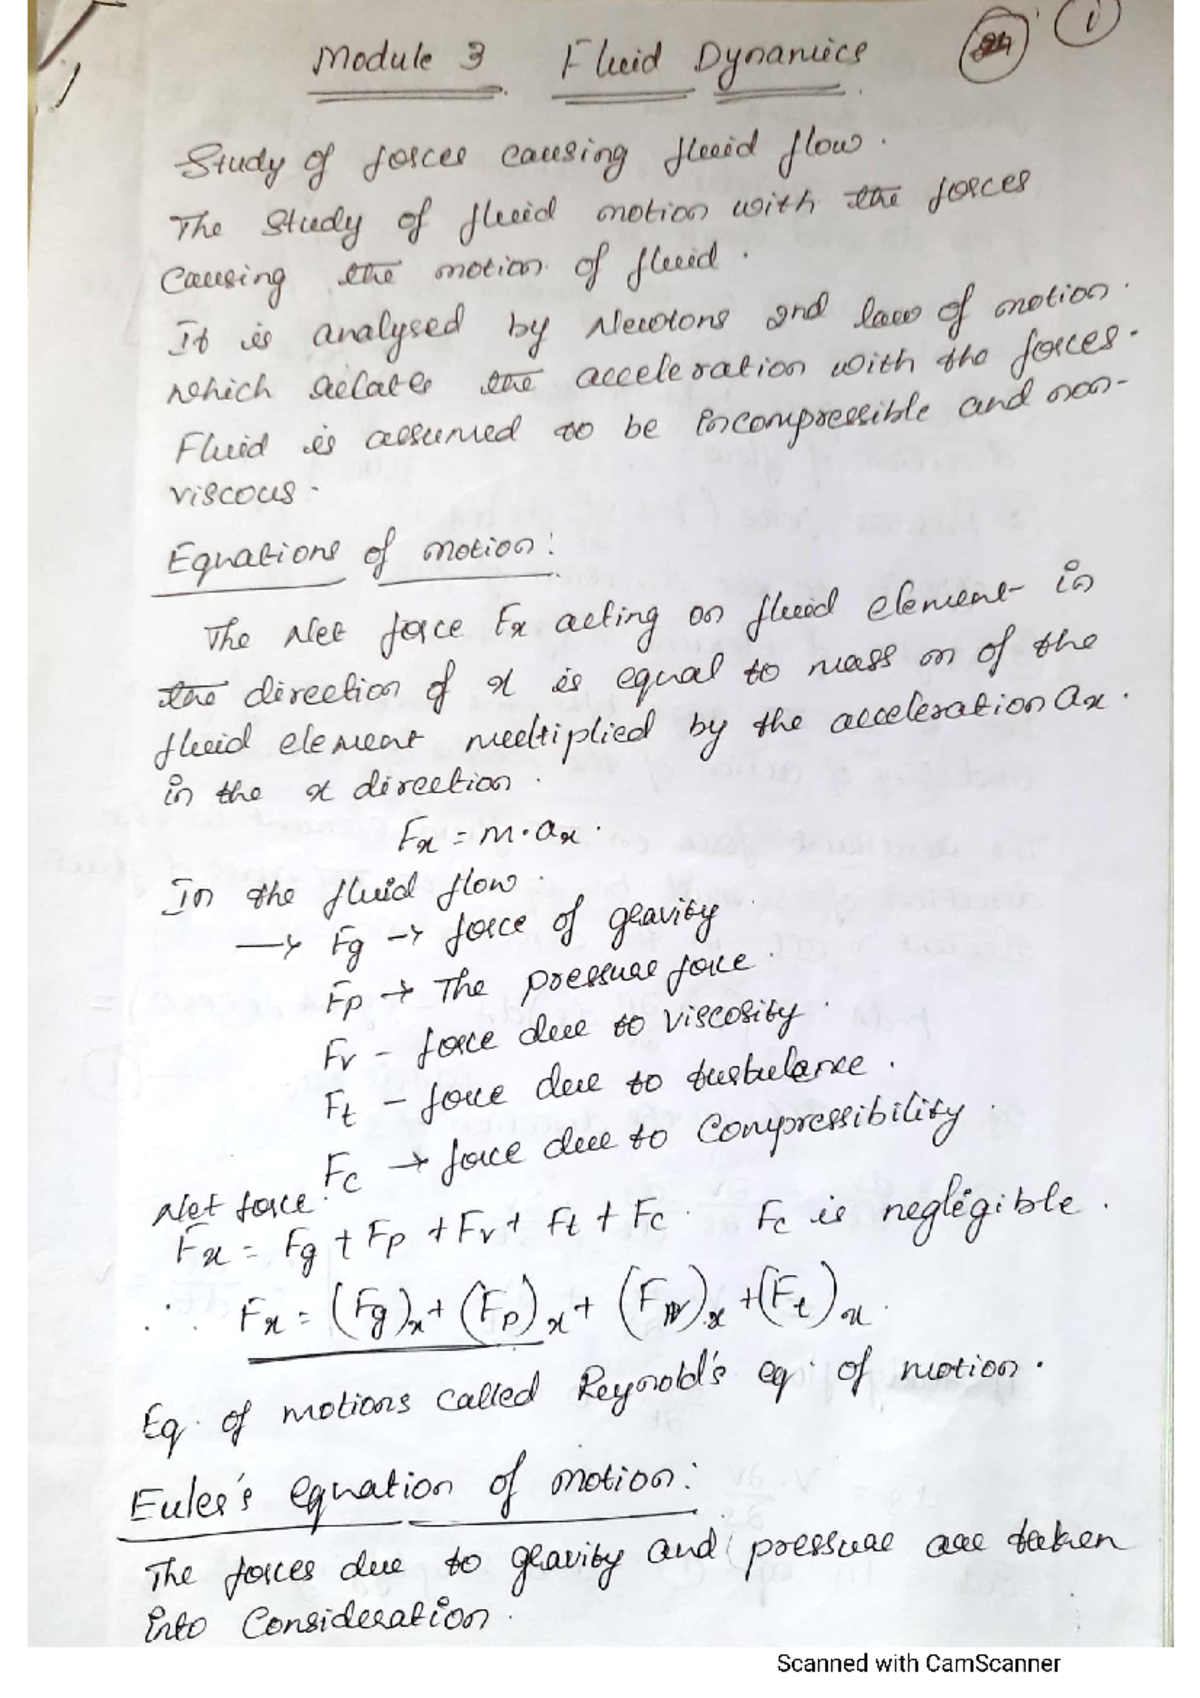 1
Module 3 Fluid Dynamics
Study of forces causing fluid flow.
The Study of fluid motion with the forces
causing the motion of fluid.
It is analysed by Newtons 2nd law of motion.
which relates the acceleration with the forces.
Fluid is assumed to be incompressible and non-
viscous.
Equations of motion:
The Net force Fx acting on fluid element in
the direction of x is equal to mass m of the
fluid element multiplied by the acceleration ax.
in the x direction.
Fx = m·ax.
In the fluid flow.
→ Fg → force of gravity
Fp → The pressure force.
Fv – force due to viscosity.
Ft – force due to turbulance.
Fc → force due to Compressibility.
Net force.
Fx = Fg + Fp + Fv + Ft + Fc. Fc is neglegible.
∴ Fx = (Fg)x + (Fp)x + (Fv)x + (Ft)x.
Eq. of motions called Reynold's eq. of motion.
Euler's equation of motion:
The forces due to gravity and pressure are taken
into Consideration.
Scanned with CamScanner